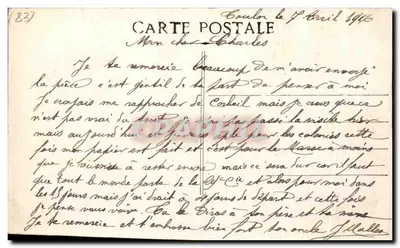 (83)
Toulon le 7 Avril 1916
CARTE POSTALE
Mon cher Charles
Je te remercie beaucoup de m'avoir envoyé
la pièce c'est gentil de ta part de penser à moi
Je croyais me rapprocher de Corbeil mais je vous que ca
n'est pas vrai du tout passer la visite hier
mais aujourd'hui pour les colonies cette
fois mon papier est fait et c'est pour le Maroc à moins
que je réussisse à rester encore mais ce sera dur car il faut
que tout le monde parte de la Cie et alors pour moi dans
les 15 jours mais j'ai droit à jours de départ et cette fois
je pense vous voir. Tu le diras à ton père et ta mère
Je te remercie et t'embrasse bien fort ton oncle